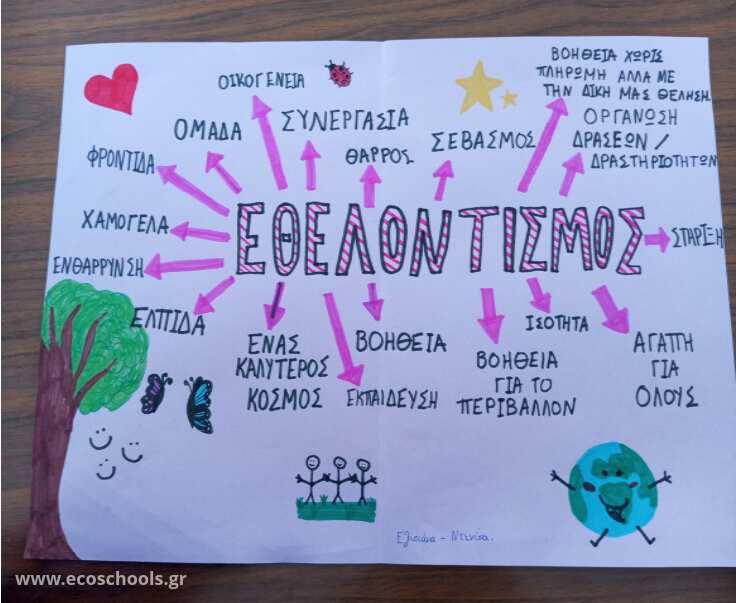 ΒΟΗΘΕΙΑ ΧΩΡΙΣ
ΠΛΗΡΩΜΗ ΑΛΛΑ ΜΕ
ΤΗΝ ΔΙΚΗ ΜΑΣ ΘΕΛΗΣΗ
ΟΙΚΟΓΕΝΕΙΑ
ΟΜΑΔΑ
ΣΥΝΕΡΓΑΣΙΑ
ΘΑΡΡΟΣ
ΣΕΒΑΣΜΟΣ
ΟΡΓΑΝΩΣΗ
ΔΡΑΣΕΩΝ /
ΔΡΑΣΤΗΡΙΟΤΗΤΩΝ
ΦΡΟΝΤΙΔΑ
ΧΑΜΟΓΕΛΑ
ΕΝΘΑΡΡΥΝΣΗ
ΕΘΕΛΟΝΤΙΣΜΟΣ
ΣΤΗΡΙΞΗ
ΕΛΠΙΔΑ
ΕΝΑΣ
ΚΑΛΥΤΕΡΟΣ
ΚΟΣΜΟΣ
ΒΟΗΘΕΙΑ
ΕΚΠΑΙΔΕΥΣΗ
ΒΟΗΘΕΙΑ
ΓΙΑ ΤΟ
ΠΕΡΙΒΑΛΛΟΝ
ΙΣΟΤΗΤΑ
ΑΓΑΠΗ
ΓΙΑ
ΟΛΟΥΣ
www.ecoschools.gr